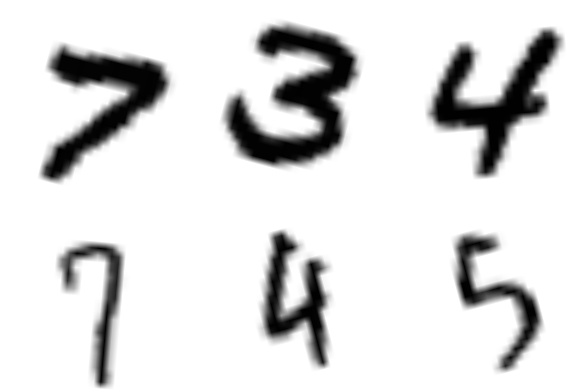 7 3 4
7 4 5